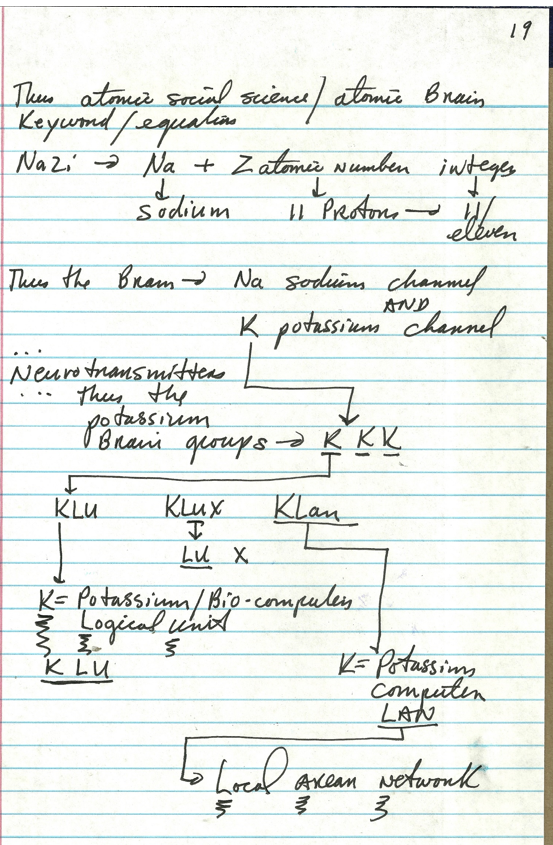 19
Thus atomic social science / atomic Brain
Keyword / equation
Nazi → Na + Z atomic number integer
sodium 11 Protons → 11/
eleven
Thus the Brain → Na sodium channel
AND
K potassium channel
...
Neurotransmitters
... thus the
potassium
Brain groups → K K K
KLU KLUX KLan
LU X
K = Potassium / Bio-computer
Logical unit
K LU
K = Potassium
computer
LAN
Local Arean Network